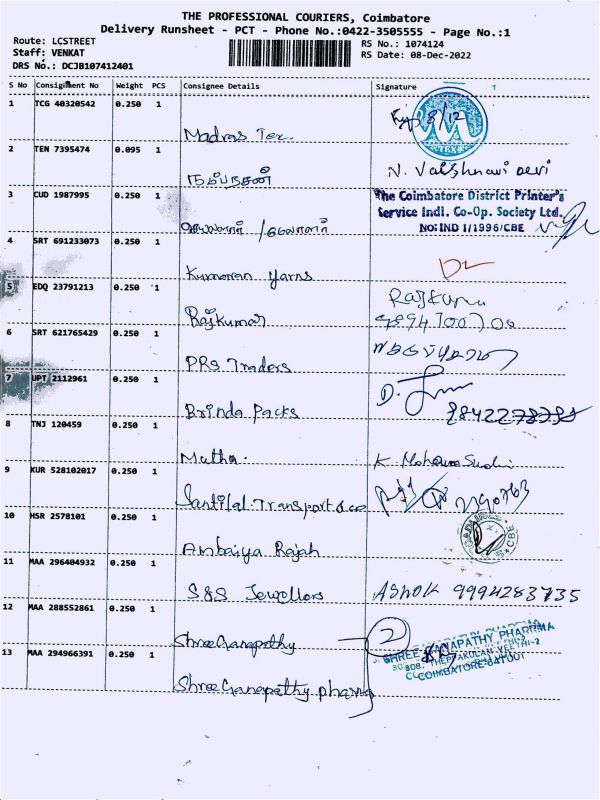 THE PROFESSIONAL COURIERS, Coimbatore
Delivery Runsheet - PCT - Phone No.:0422-3505555 - Page No.:1
Route: LCSTREET
RS No.: 1074124
Staff: VENKAT
RS Date: 08-Dec-2022
DRS No.: DCJB107412401
S No Consignment No Weight PCS Consignee Details Signature
1 TCG 40320542 0.250 1
Madras Tex. 8/12
2 TEN 7395474 0.095 1
நம்பநசன் N. Vaishnavi Devi
3 CUD 1987995 0.250 1
The Coimbatore District Printer's
Service Indl. Co-Op. Society Ltd.
NO: IND 1/1996/CBE
4 SRT 691233073 0.250 1
Kumaran Yarns
5 EDQ 23791213 0.250 1
Rajkumar Rajkumar
6 SRT 621765429 0.250 1
PRS Traders
7 UPT 2112961 0.250 1
Brinda Packs D.
8 TNJ 120459 0.250 1
Matha. K
9 KUR 528102017 0.250 1
Santilal Transport & co
10 HSR 2578101 0.250 1
Ambaiya Rajah
11 MAA 296404932 0.250 1
S&S Jewellors ASHOK 9994283735
12 MAA 288552861 0.250 1
Shree Ganapathy 2
13 MAA 294966391 0.250 1
SHREE GANAPATHY PHARRMA
COIMBATORE-641001
Shree Ganapathy pharma